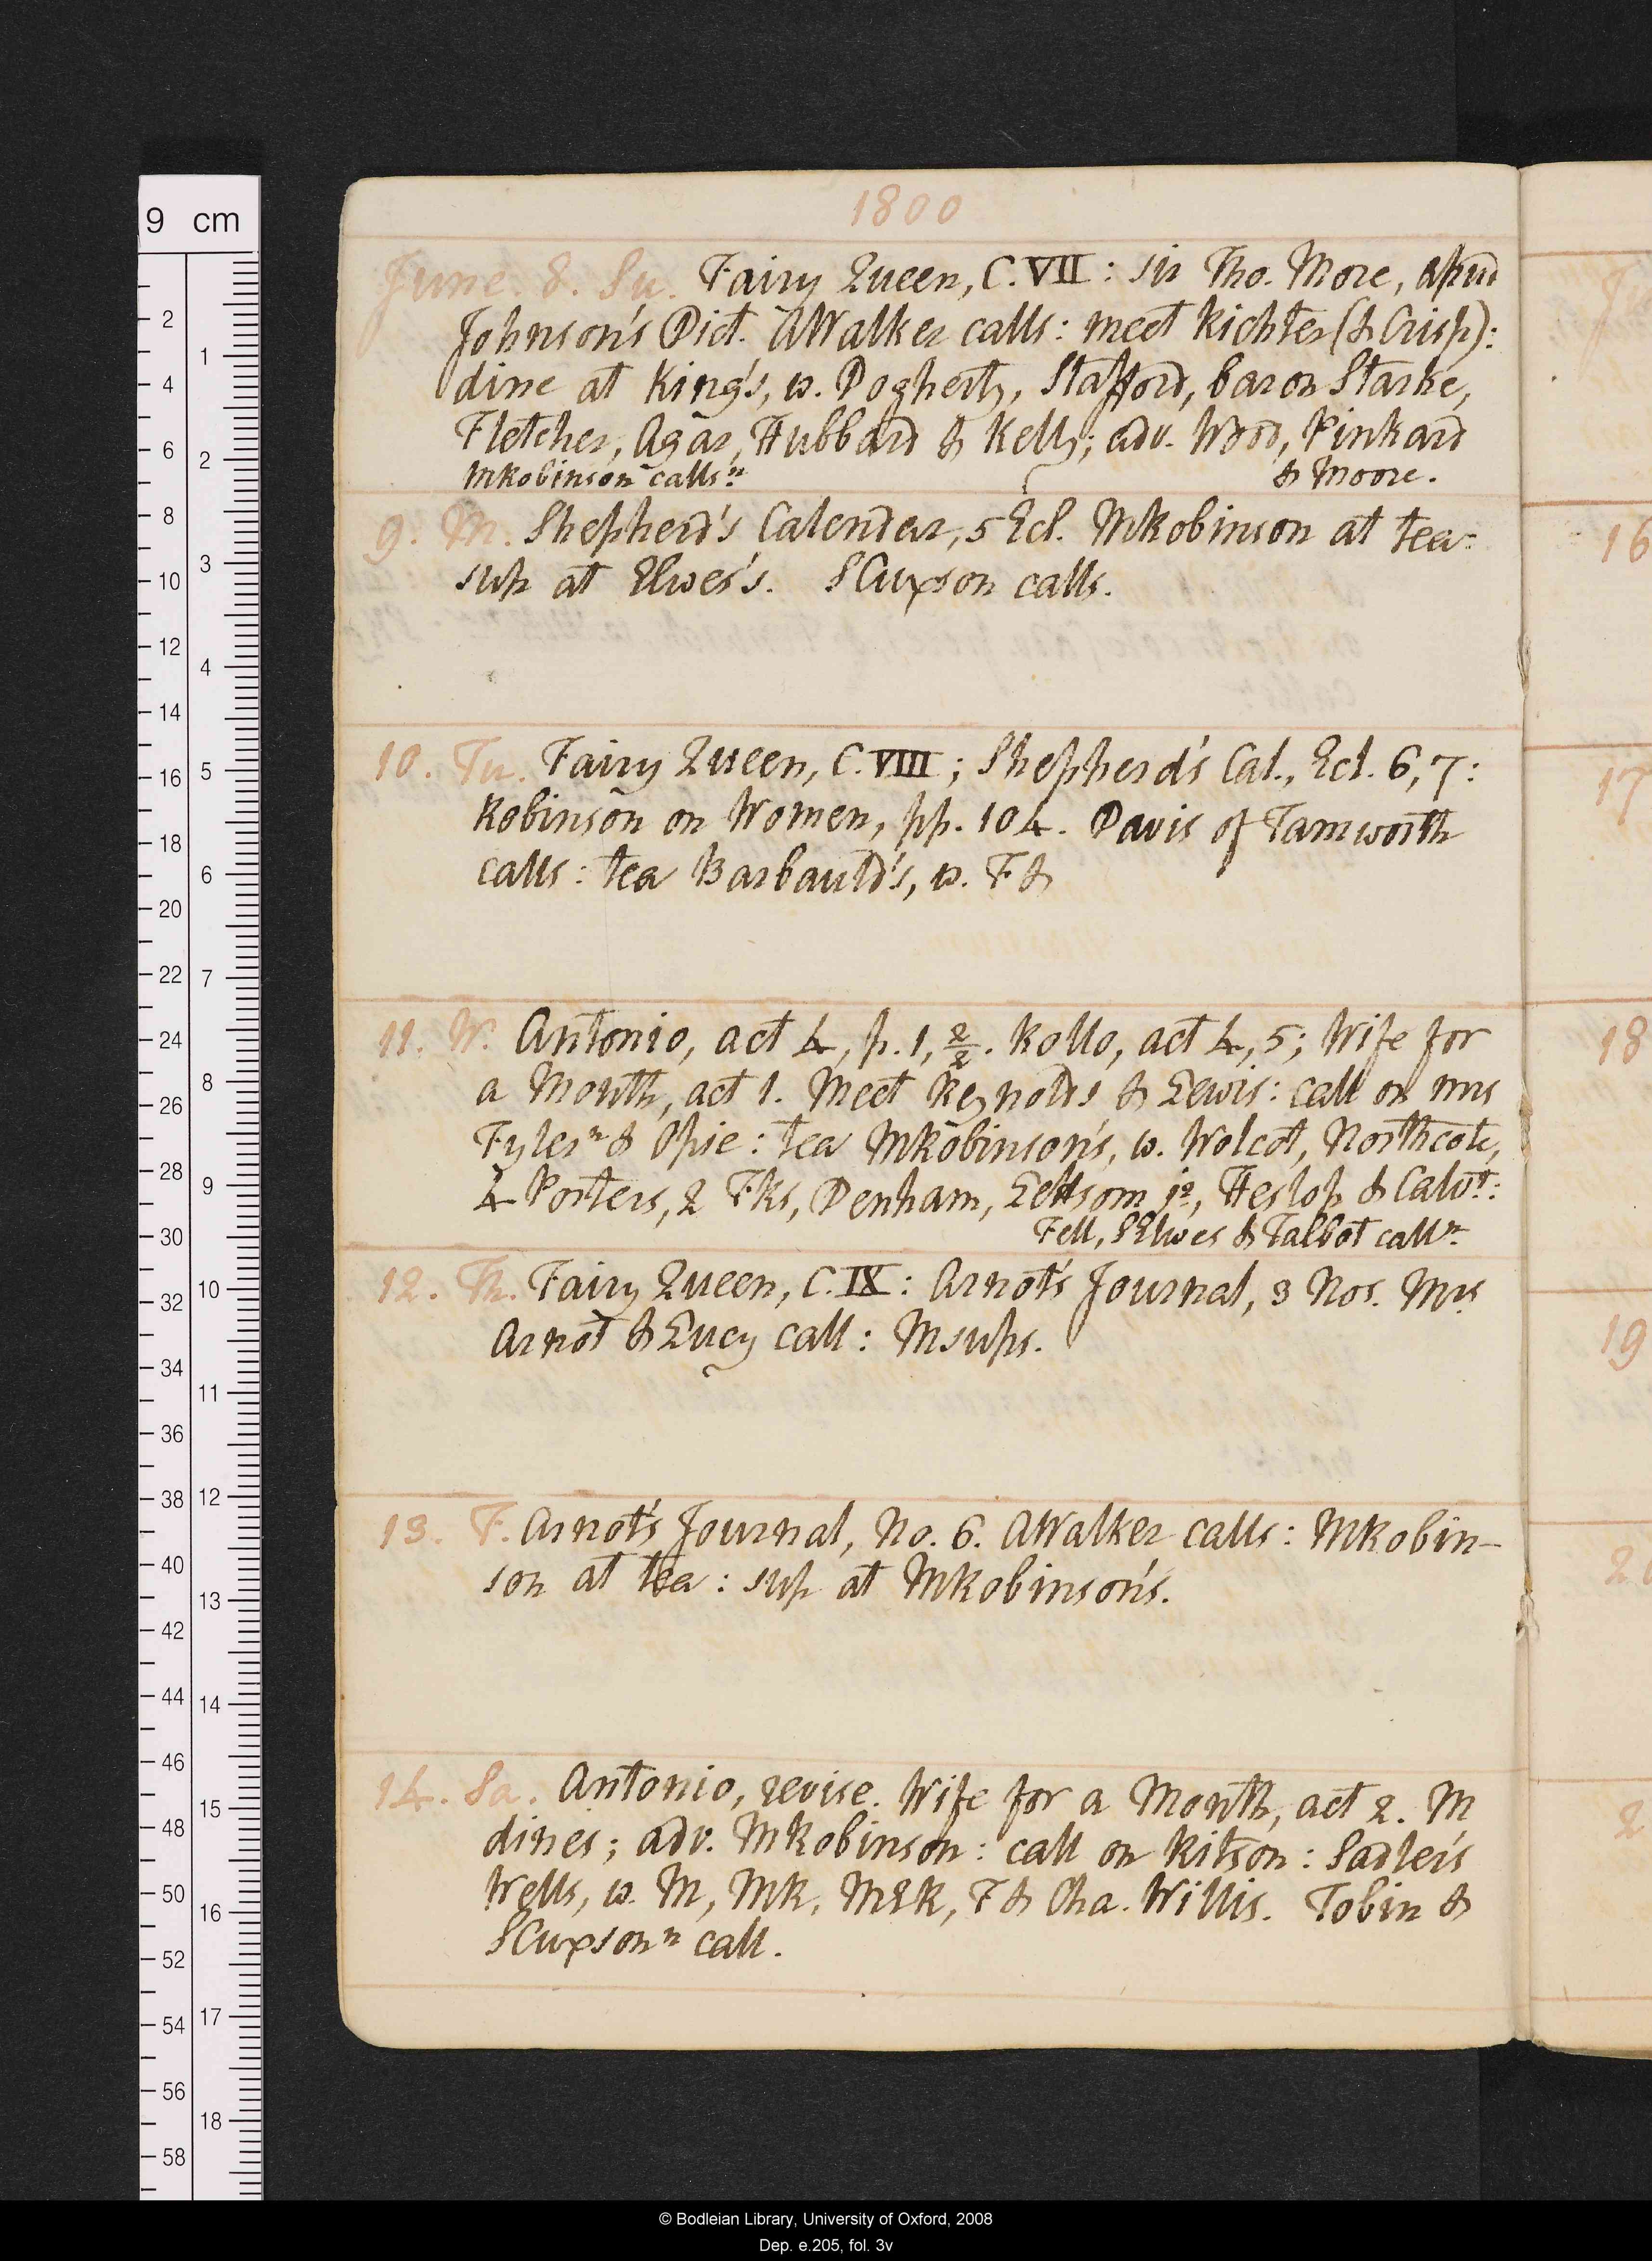 9 cm
1800
June. 8. Su. Fairy Queen, C. VII: sir Tho. More, apud
Johnson's Dict. AWalker calls: meet Richter (& Crisp):
dine at King's, w. Dogherty, Stafford, baron Starke,
Fletcher, Agar, Hubbard & Kelly; adv. Wood, Pinkard
MRobinson calls n.
& Moore.
9. M. Shepherd's Calendar, 5 Ecl. MRobinson at tea:
sup at Elwes's. SCuxson calls.
10. Tu. Fairy Queen, C. VIII; Shepherd's Cal., Ecl. 6, 7:
Robinson on Women, pp. 104. Davis of Tamworth
calls: tea Barbauld's, w. F &
11. W. Antonio, act 4, p. 1, 2/2. Rollo, act 4, 5; Wife for
a Month, act 1. Meet Reynolds & Lewis: call on mrs
Fyler n & Opie: tea MRobinson's, w. Wolcot, Northcote,
4 Porters, 2 Fks, Denham, Lettsom jr, Heslop & Calvt:
Fell, SElwes & Talbot call n.
12. Th. Fairy Queen, C. IX: Arnot's Journal, 3 Nos. Mrs
Arnot & Lucy call: M sups.
13. F. Arnot's Journal, No. 6. AWalker calls: MRobin-
son at tea: sup at MRobinson's.
14. Sa. Antonio, revise. Wife for a Month, act 2. M
dines; adv. MRobinson: call on Ritson: Sadler's
Wells, w. M, MR, MER, F & Cha. Willis. Tobin &
SCuxson n call.
© Bodleian Library, University of Oxford, 2008
Dep. e.205, fol. 3v